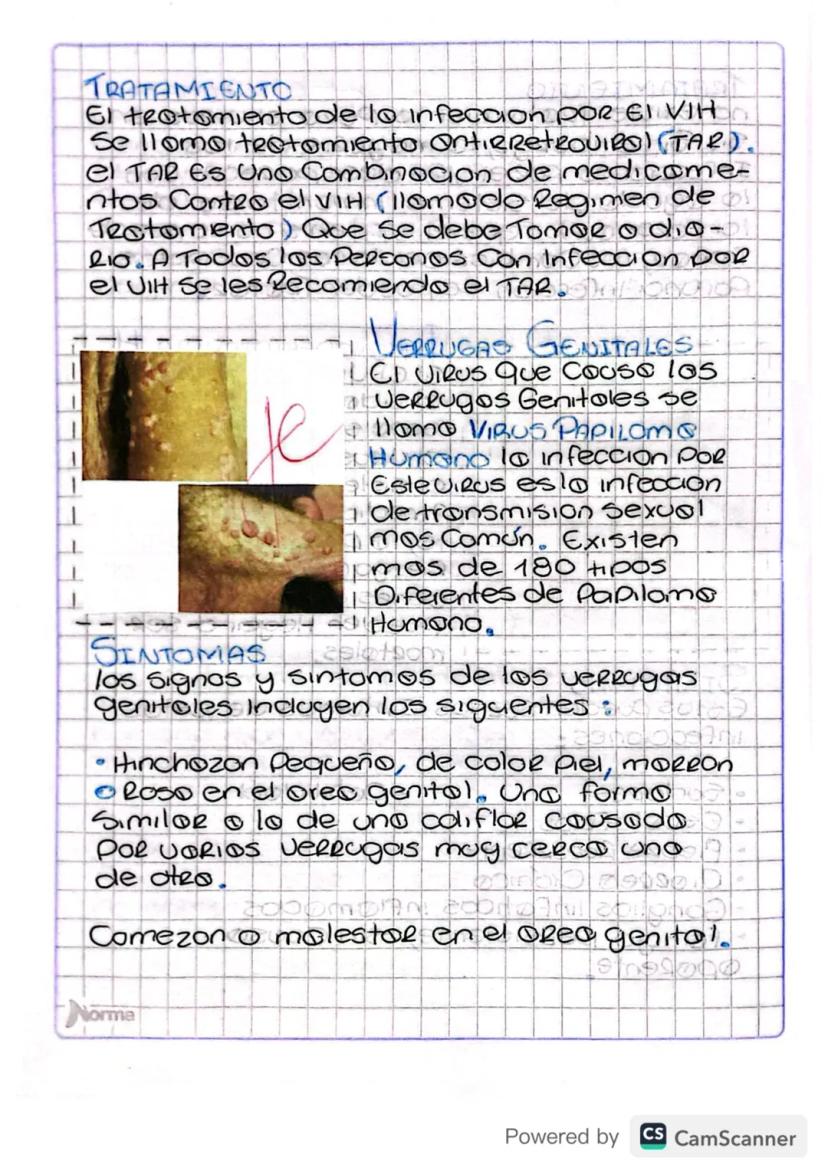 TRATAMIENTO
El tratamiento de la infeccion por El VIH
Se llama tratamiento antirretroviral (TAR).
el TAR Es una Combinacion de medicame-
ntos Contra el VIH (llamado Regimen de
Tratamiento) Que Se debe Tomar a dia-
rio. A Todas las Personas Con Infeccion por
el VIH Se les Recomienda el TAR.
VERRUGAS GENITALES
El virus Que Causa las
Verrugas Genitales se
llama VIRUS PAPILOMA
Humano la infeccion por
Este virus es la infeccion
de transmision sexual
mas Común. Existen
mas de 180 tipos
Diferentes de Papiloma
Humano.
SINTOMAS
los signos y sintomas de las verrugas
genitales incluyen los siguentes :
• Hinchazon Pequeña, de color Piel, marron
o Rosa en el area genital. Una forma
Similar a la de una coliflor Causada
Por varias Verrugas muy cerca una
de otra.
Comezon o malestar en el area genital.
Norma
Powered by CS CamScanner